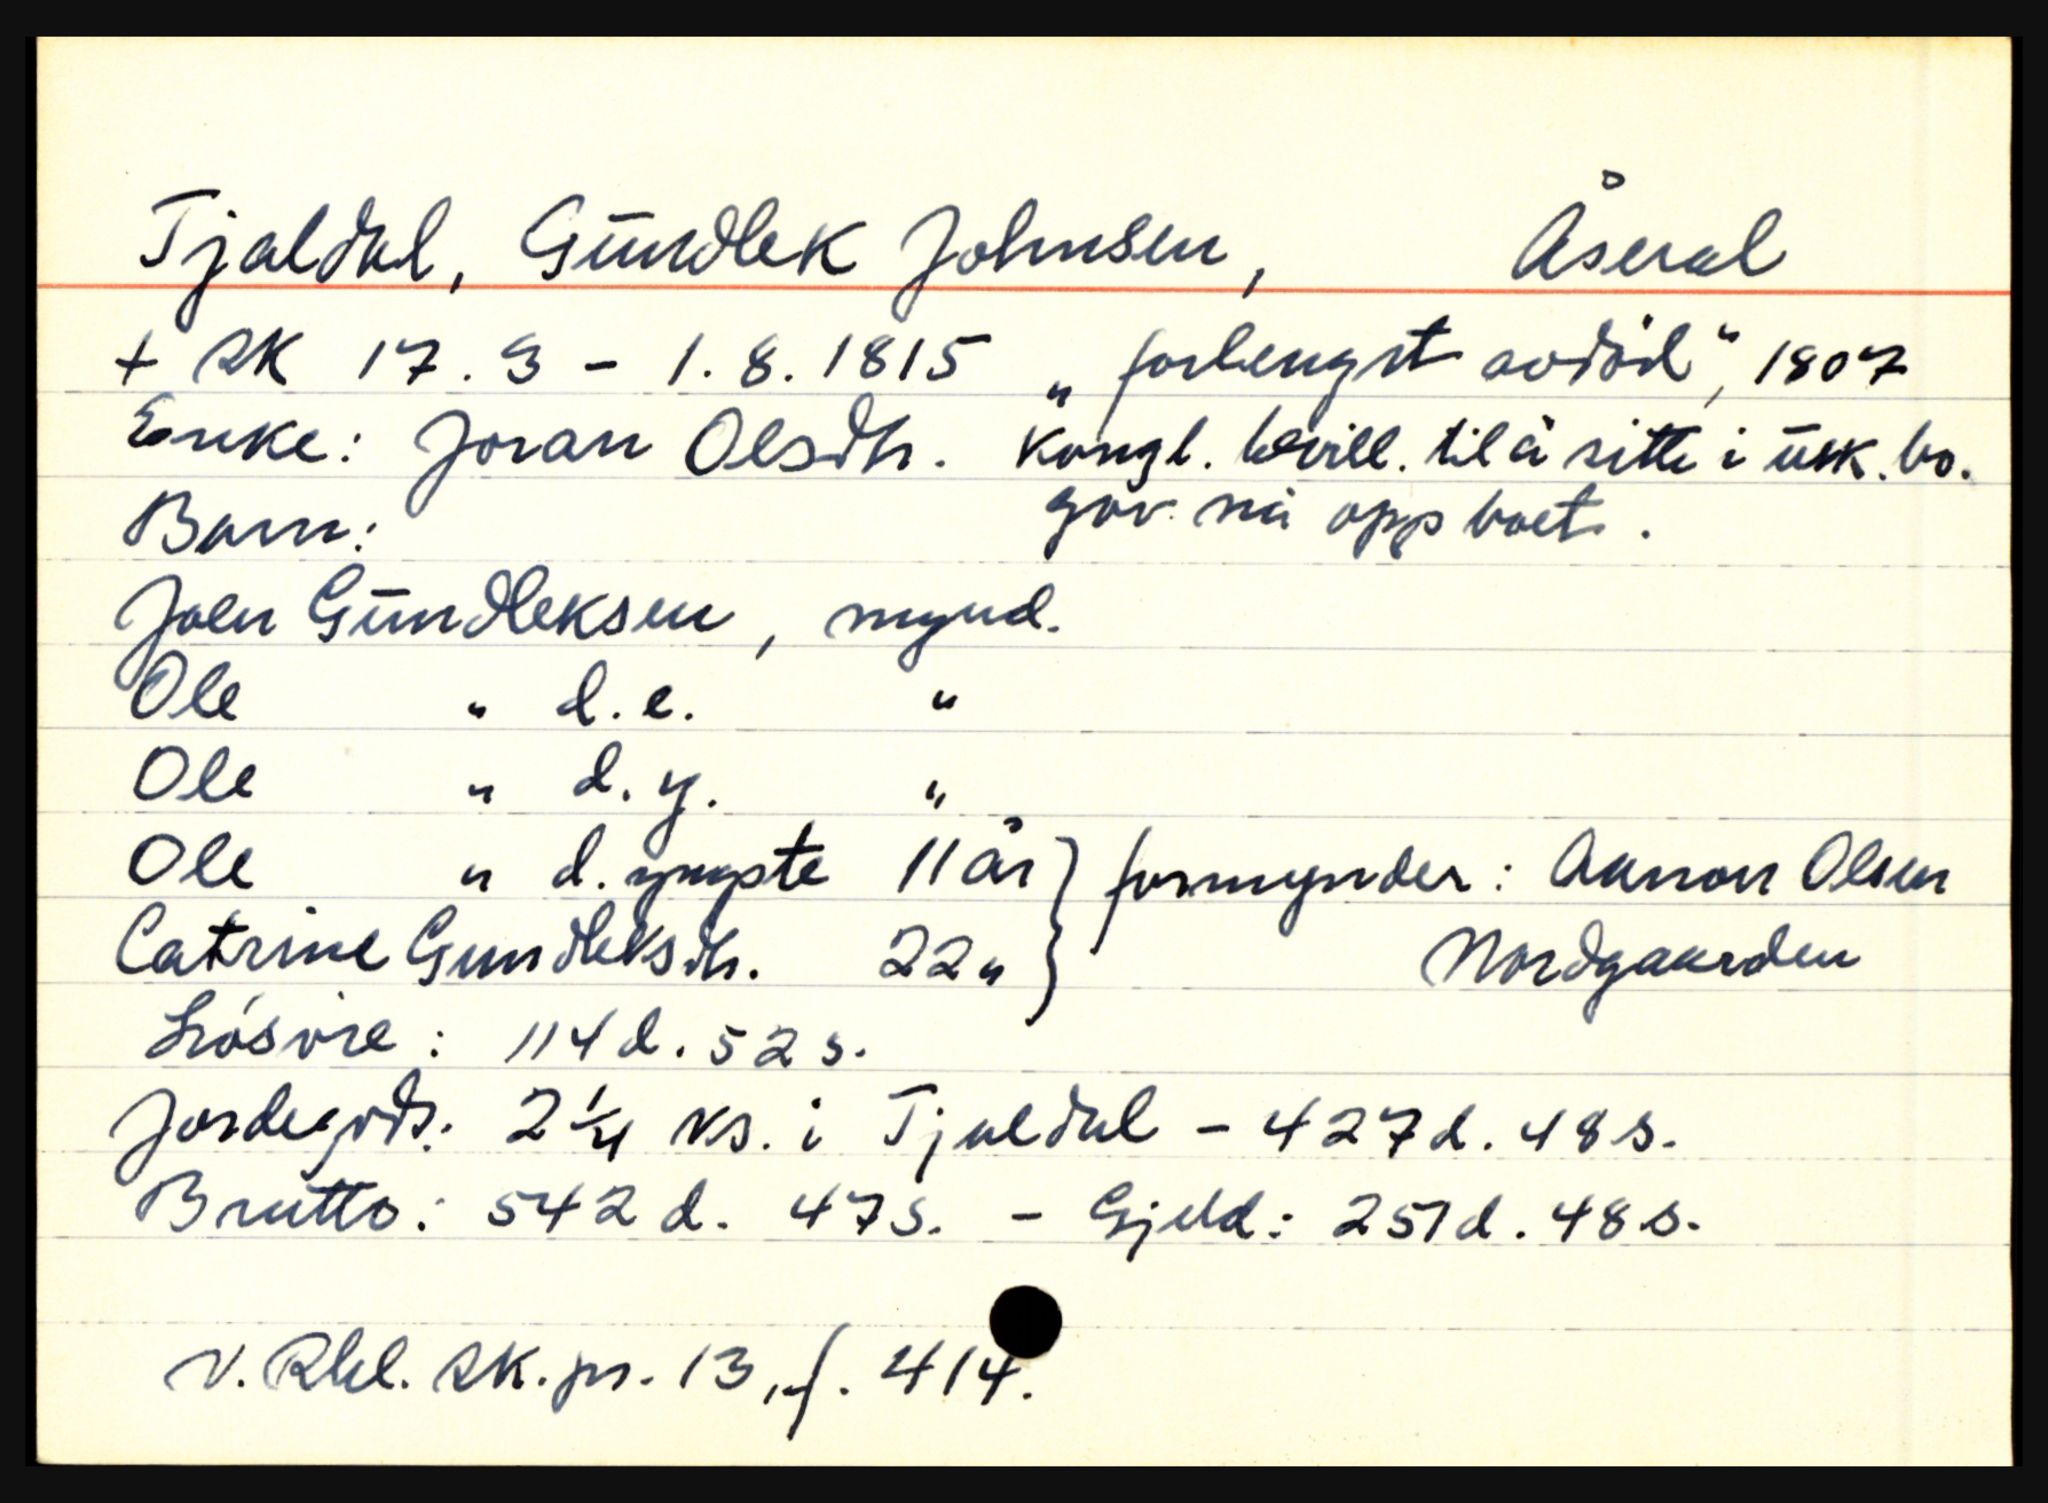 Tjaldal, Gundlek Johnsen, Åseral
+ SK 17.3 - 1.8.1815 „forlengst avdöd", 1807
Enke: Joran Olsdtr. Kongl. bevill. til å sitte i usk. bo.
gav nå opp boet.
Barn:
John Gundleksen, mynd.
Ole " d.e. "
Ole " d.y. "
Ole " d. yngste 11 år } formynder: Aanon Olsen
Catrine Gundleksdtr. 22 " } Nordgaarden
Lösøre: 114 d. 52 s.
Jordegods: 2 1/4 ks. i Tjaldal - 427 d. 48 s.
Brutto: 542 d. 47 s. - Gjeld: 251 d. 48 s.
V. Rbl. SK. pr. 13, f. 414.